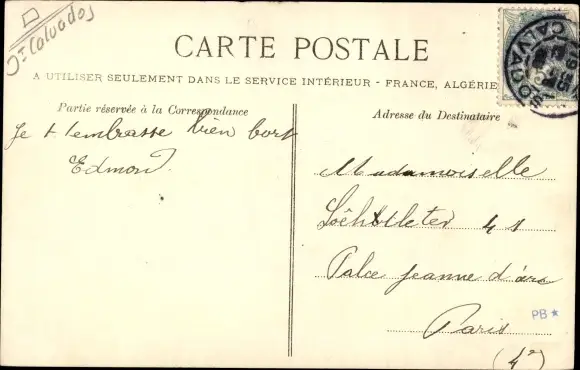 Jt Calvados
CARTE POSTALE
A UTILISER SEULEMENT DANS LE SERVICE INTÉRIEUR - FRANCE, ALGÉRIE
CALVADOS
Partie réservée à la Correspondance
Adresse du Destinataire
Je t'embrasse bien fort
Edmond
Mademoiselle
41
Palce Jeanne d'arc
Paris
PB ★
(4e)